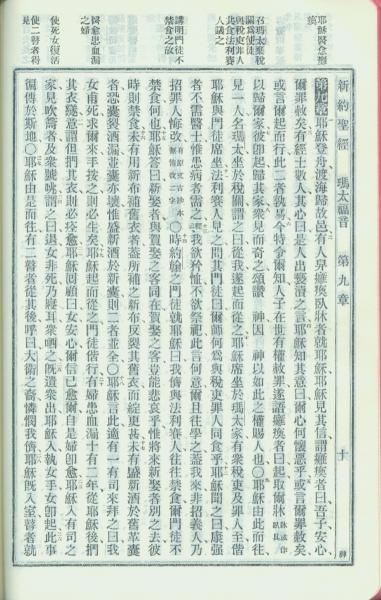 新約聖經 瑪太福音 第九章 十 神
耶穌醫全癱瘓
召瑪太棄稅關為使徒
與稅吏罪人共食法利賽人議之
講明門徒不禁食之故
醫愈患血漏之婦
使死女復活
使二瞽者得
第九章 耶穌登舟渡海歸故邑有人舁癱瘓臥牀者就耶穌耶穌見其信謂癱瘓者曰吾子安心
爾罪赦矣有經士數人其心曰是人出褻瀆之言耶穌知其意曰爾心何懷惡乎或言爾罪赦矣
或言爾起而行此二者孰易今特令爾知人子在世有權赦罪遂語癱瘓者曰起取爾牀
以歸爾家彼卽起歸其家衆見而奇之頌讚 神因 神以如此之權賜人也○耶穌由此而往
見一人名瑪太坐於稅關謂之曰從我遂起而從之耶穌席坐於瑪太家有衆稅吏及罪人至偕
耶穌與門徒席坐法利賽人見之問其門徒曰爾師何為與稅吏罪人同食乎耶穌聞之曰康强
者不需醫士惟患病者需之經我欲矜恤不欲祭祀此言何意爾且往學之蓋我來非招義人乃
招罪人悔改○時約翰之門徒就耶穌曰我儕與法利賽人往往禁食爾門徒不
禁食何也耶穌答曰新娶者與賀娶之客同在賀娶之客豈能悲哀乎惟將來新娶者別之去彼
時則禁食矣未有用新布補舊衣者蓋所補之新布反裂其舊衣而綻更甚未有盛新酒於舊革囊
者恐囊裂酒漏並囊亦壞惟盛新酒於新囊則二者並全○耶穌言此適有一有司來拜之曰我
女甫死求爾來手按之則必生矣耶穌起而從之門徒偕行有婦患血漏十有二年從耶穌後捫
其衣繸意謂但捫其衣則必痊愈耶穌回顧曰女安心爾信已愈爾自是婦卽愈耶穌入有司之
家見吹籥者及衆號咷謂之曰退女非死乃寢耳衆哂之旣遣衆出耶穌入執女手女卽起此事
徧傳於斯地○耶穌由是而往有二瞽者從其後呼曰大衛之裔憐憫我儕耶穌旣入室瞽者就